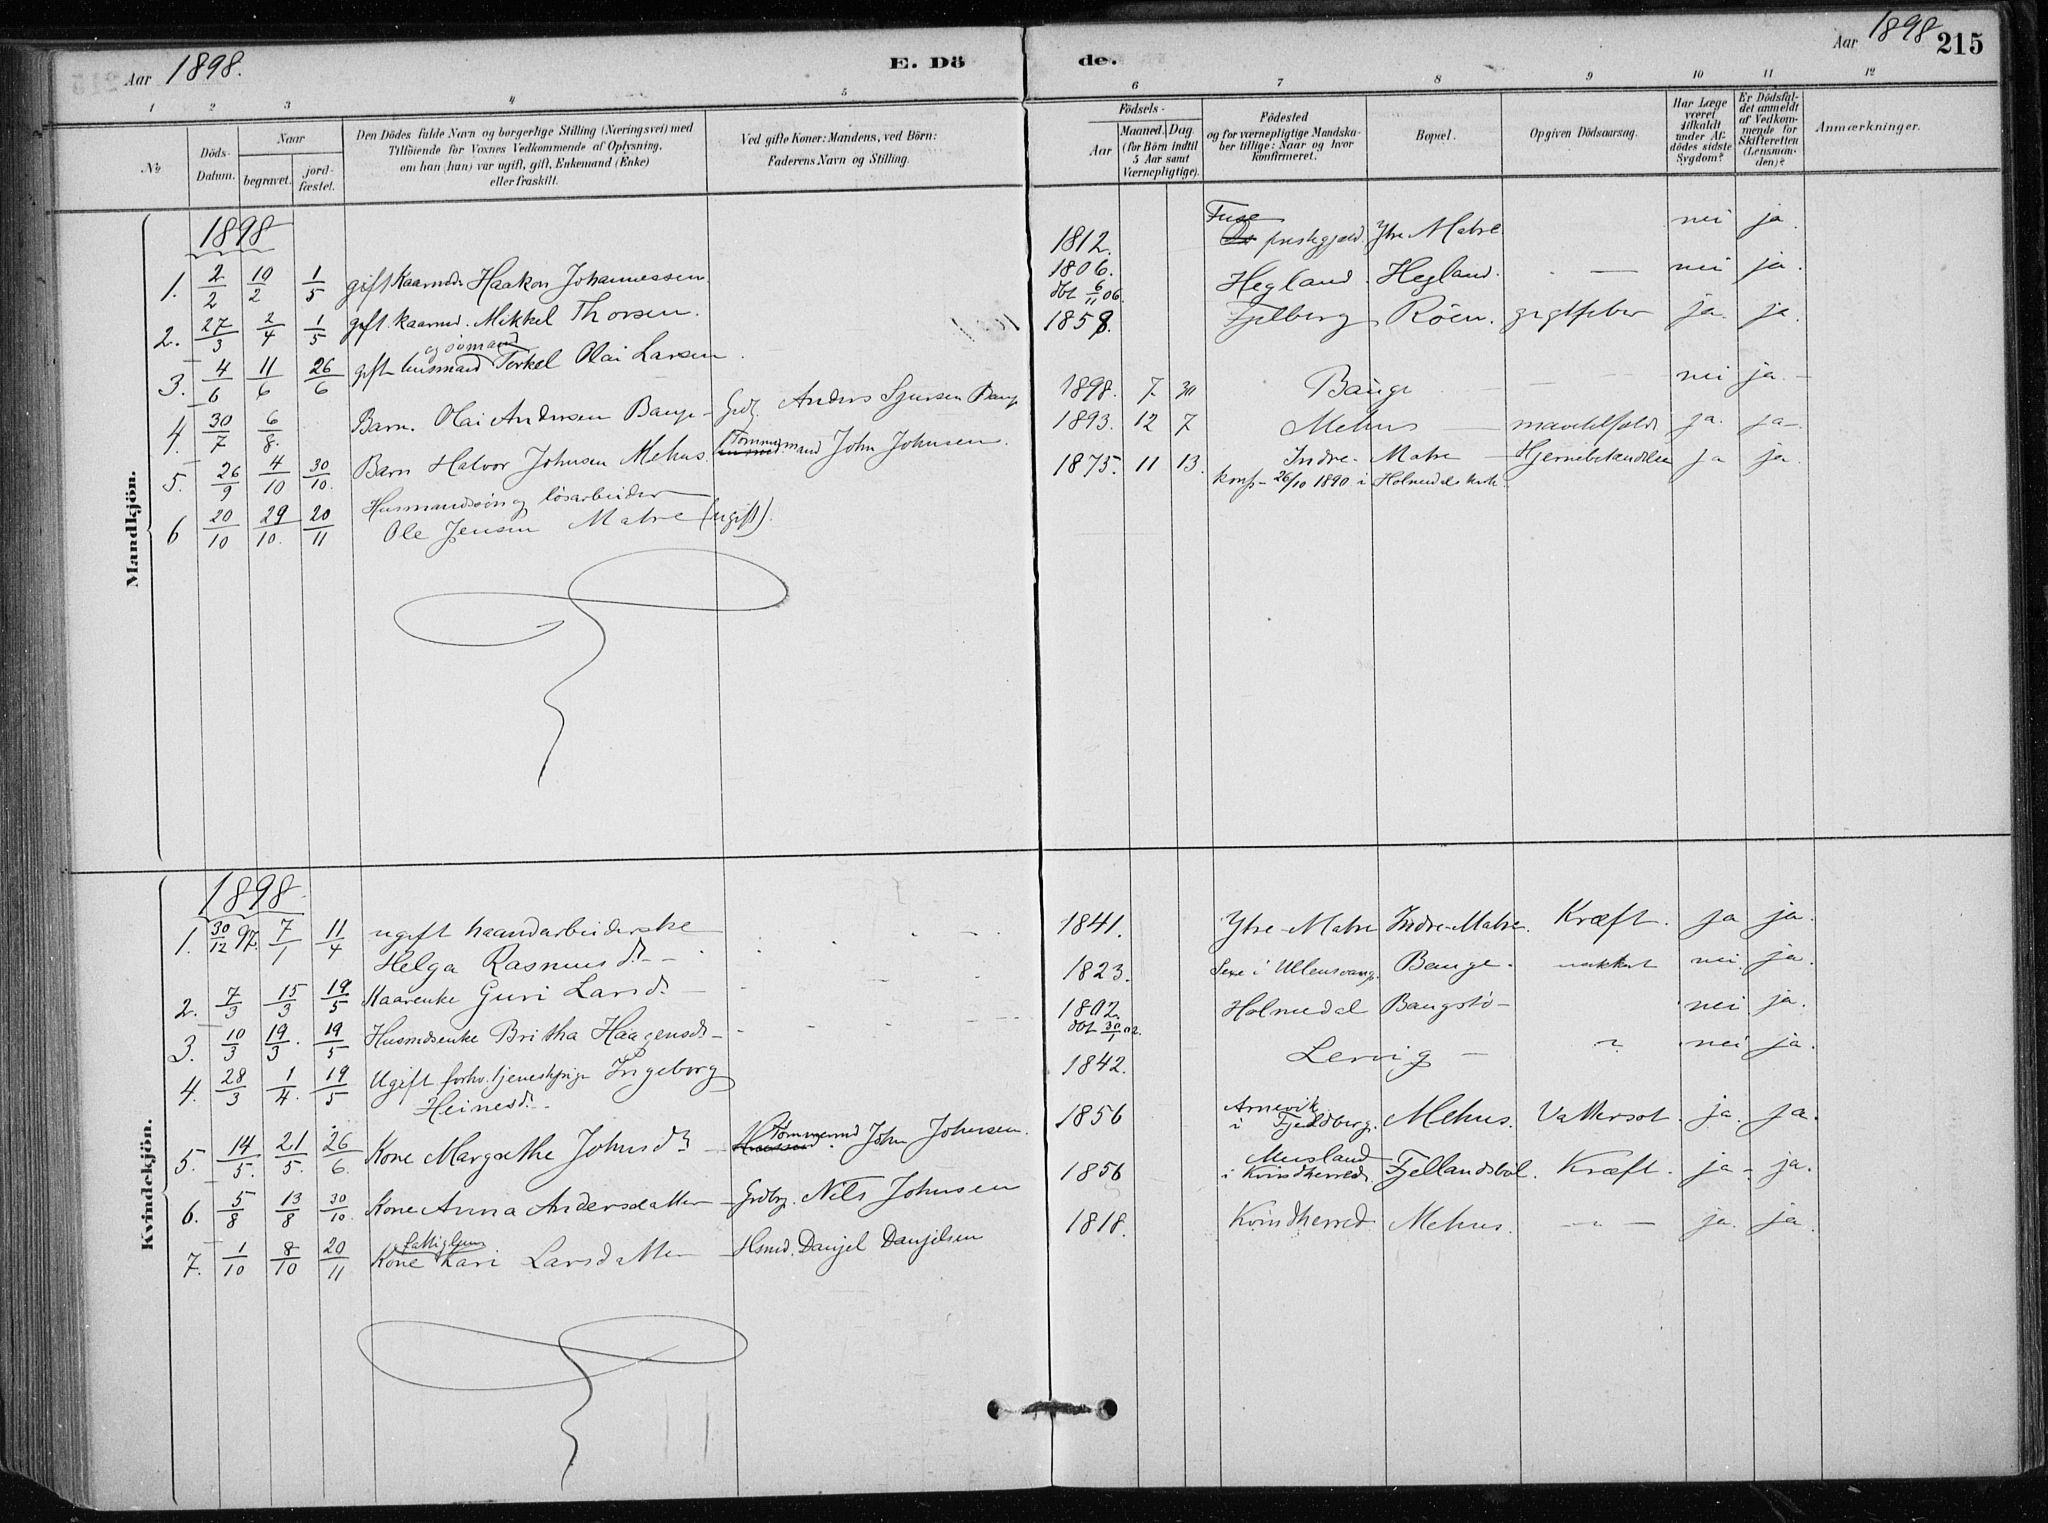 Aar 1898.
E. Dö
de.
Aar 1898
215
1 2 3 4 5 6 7 8 9 10 11 12
No
Döds-Datum.
Naar
begravet.
jord-fæstet.
Den Dödes fulde Navn og borgerlige Stilling (Næringsvei) med
Tilföiende for Voxnes Vedkommende af Oplysning,
om han (hun) var ugift, gift, Enkemand (Enke)
eller fraskilt.
Ved gifte Koner: Mandens, ved Börn:
Faderens Navn og Stilling.
Födsels-
Aar
Maaned. Dag.
(for Börn indtil
5 Aar samt
Værnepligtige).
Födested
og for værnepligtige Mandska-
ber tillige: Naar og hvor
konfirmeret.
Bopæl.
Opgiven Dödsaarsag.
Har Læge
været
tilkaldt
under Af-
dödes sidste
Sygdom?
Er Dödsfal-
det anmeldt
af Vedkom-
mende for
Skifteretten
(Lensman-
den)?
Anmærkninger.
Mandkjön.
1898
1. 2/2 10/2 1/5 gift Kaarmd. Haakon Johannessen 1812. Fuse prestegjæld. Ytre Matre nei ja.
2. 27/3 2/4 1/5 gift kaarmd. Mikkel Thorsen. 1806. døbt 6/11 06. Hegland Hegland. - nei ja.
3. 4/6 11/6 26/6 gift husmand og sømand Torkel Olai Larsen 1858. Fjelberg Röen. gigtfeber ja. ja.
4. 30/7 6/8. Barn. Olai Andersen Bauge - Grdbr. Anders Sjursen Bauge 1898. 7 30 Bauge - nei ja -
5. 26/9 4/10 30/10. Barn Halvor Johnsen Mehus. Tømmermand John Johnsen. 1893. 12 7 Mehus - ja. ja -
6 20/10 29/10. 20/11 Husmandssøn og løsarbeider
Ole Jensen Matre (ugift). 1875. 11 13. Indre - Matre - Hjernebetændelse ja ja.
konf - 26/10 1890 i Holmedals kirke.
Kvindekjön.
1898.
1. 30/12 97. 7/1 11/4 ugift haandarbeiderske
Helga Rasmusd. - 1841. Ytre - Matre Indre - Matre. Kræft. ja ja.
2. 7/3 15/3 19/5 Kaarenke Guri Larsd. - 1823. Sexe i Ullensvang. Bauge - nei. ja.
3. 10/3 19/3. 19/5 Husmdsenke Britha Haagensd. - 1802. døbt 30/1 02. Holmedal Baugstø - nei ja.
4. 28/3 1/4. 19/5 Ugift forhv. tjenestepige Ingeborg
Heinesd. - 1842. Lervig - nei ja.
5. 14/5. 21/5. 26/6. Kone Margrethe Johnsd. - Tømmermd. John Johnsen. 1856 Arnevik i Fjeldberg. Mehus. Vattersot. ja. ja.
6. 5/8 13/8 30/10. Kone Anna Andersdatter - Grdbr. Nils Johnsen 1856 Musland i Kvindherred. Fjellandsbøl. Kræft. ja - ja.
7. 1/10 8/10 20/11 Fattiglem Kone Kari Larsdatter - Hsmd. Danjel Danjelsen 1818. Kvindherred. Mehus. - ja. ja.